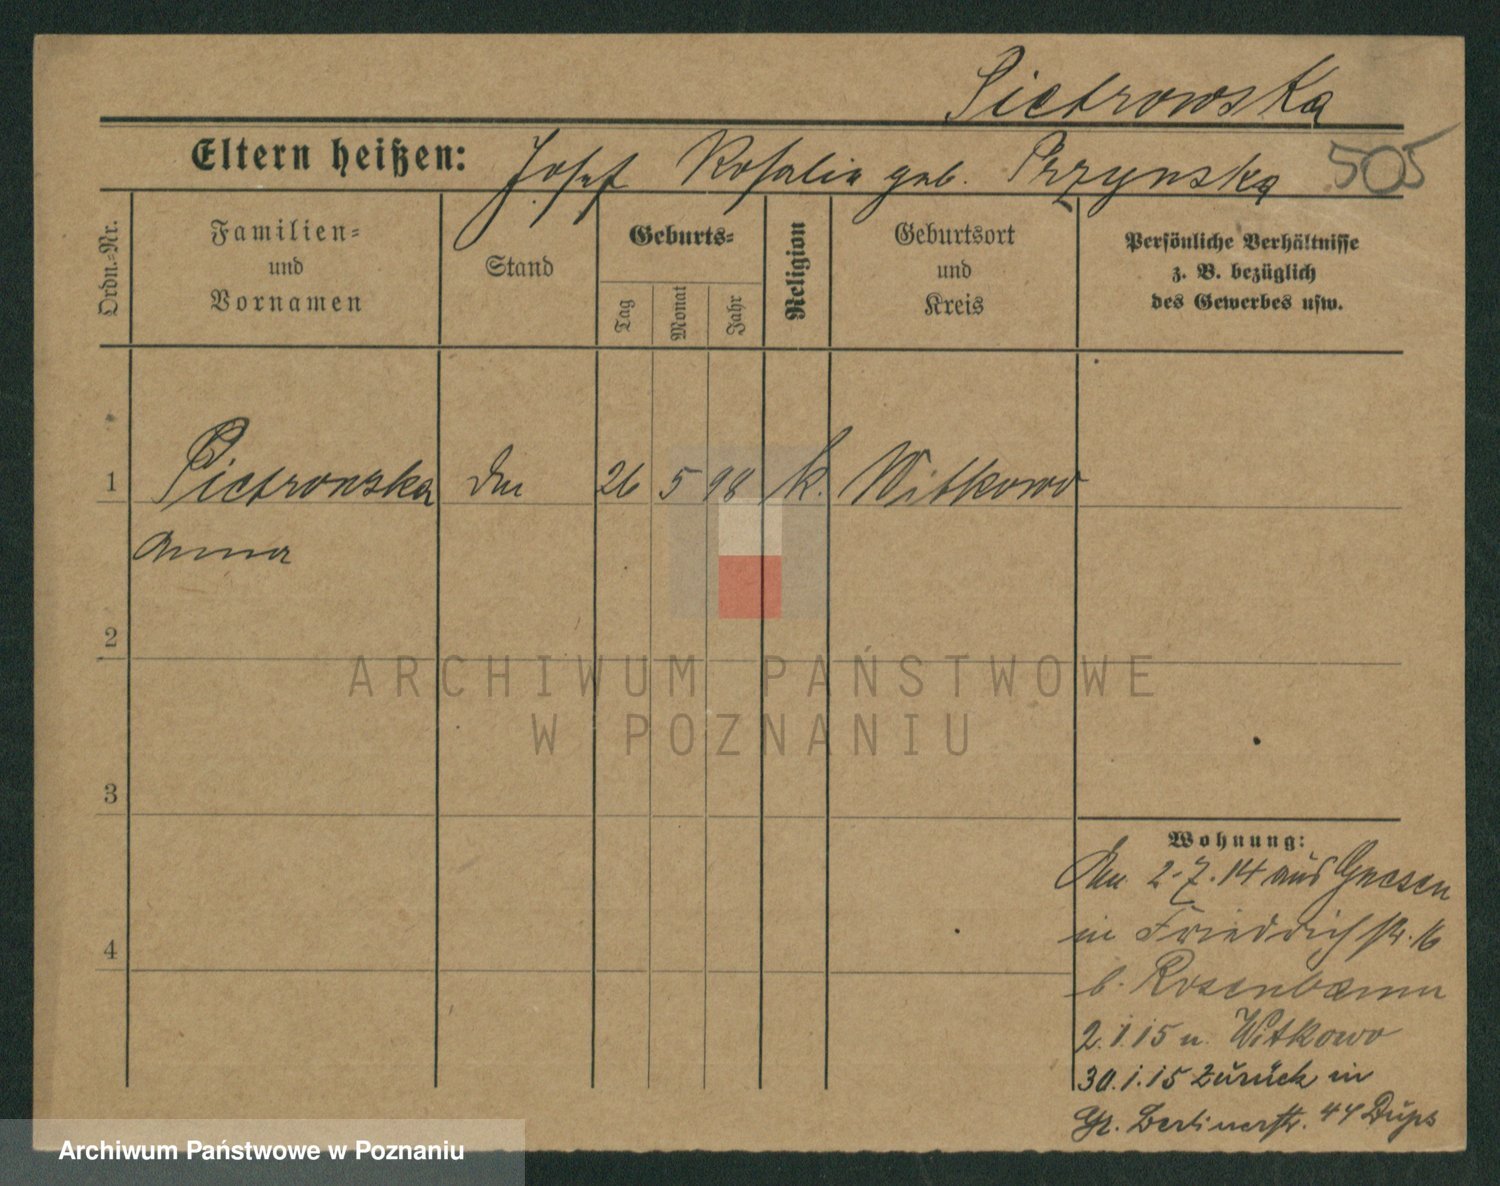 Pietrowska
Eltern heißen: Josef Rosalia geb. Przynska 505
Ordn.=Nr.
Familien=
und
Vornamen
Stand
Geburts=
Tag
Monat
Jahr
Religion
Geburtsort
und
Kreis
Persönliche Verhältnisse
z. B. bezüglich
des Gewerbes usw.
1 Pietrowska 26 5 98 k. Witkowo
Anna
2
3
4
Wohnung:
2.7.14 aus Gnesen
in Friedrichstr. 16
b. Rosenbaum
2.1.15 n. Witkowo
30.1.15 zurück in
Gr. Berlinerstr. 44
ARCHIWUM PAŃSTWOWE
W POZNANIU
Archiwum Państwowe w Poznaniu